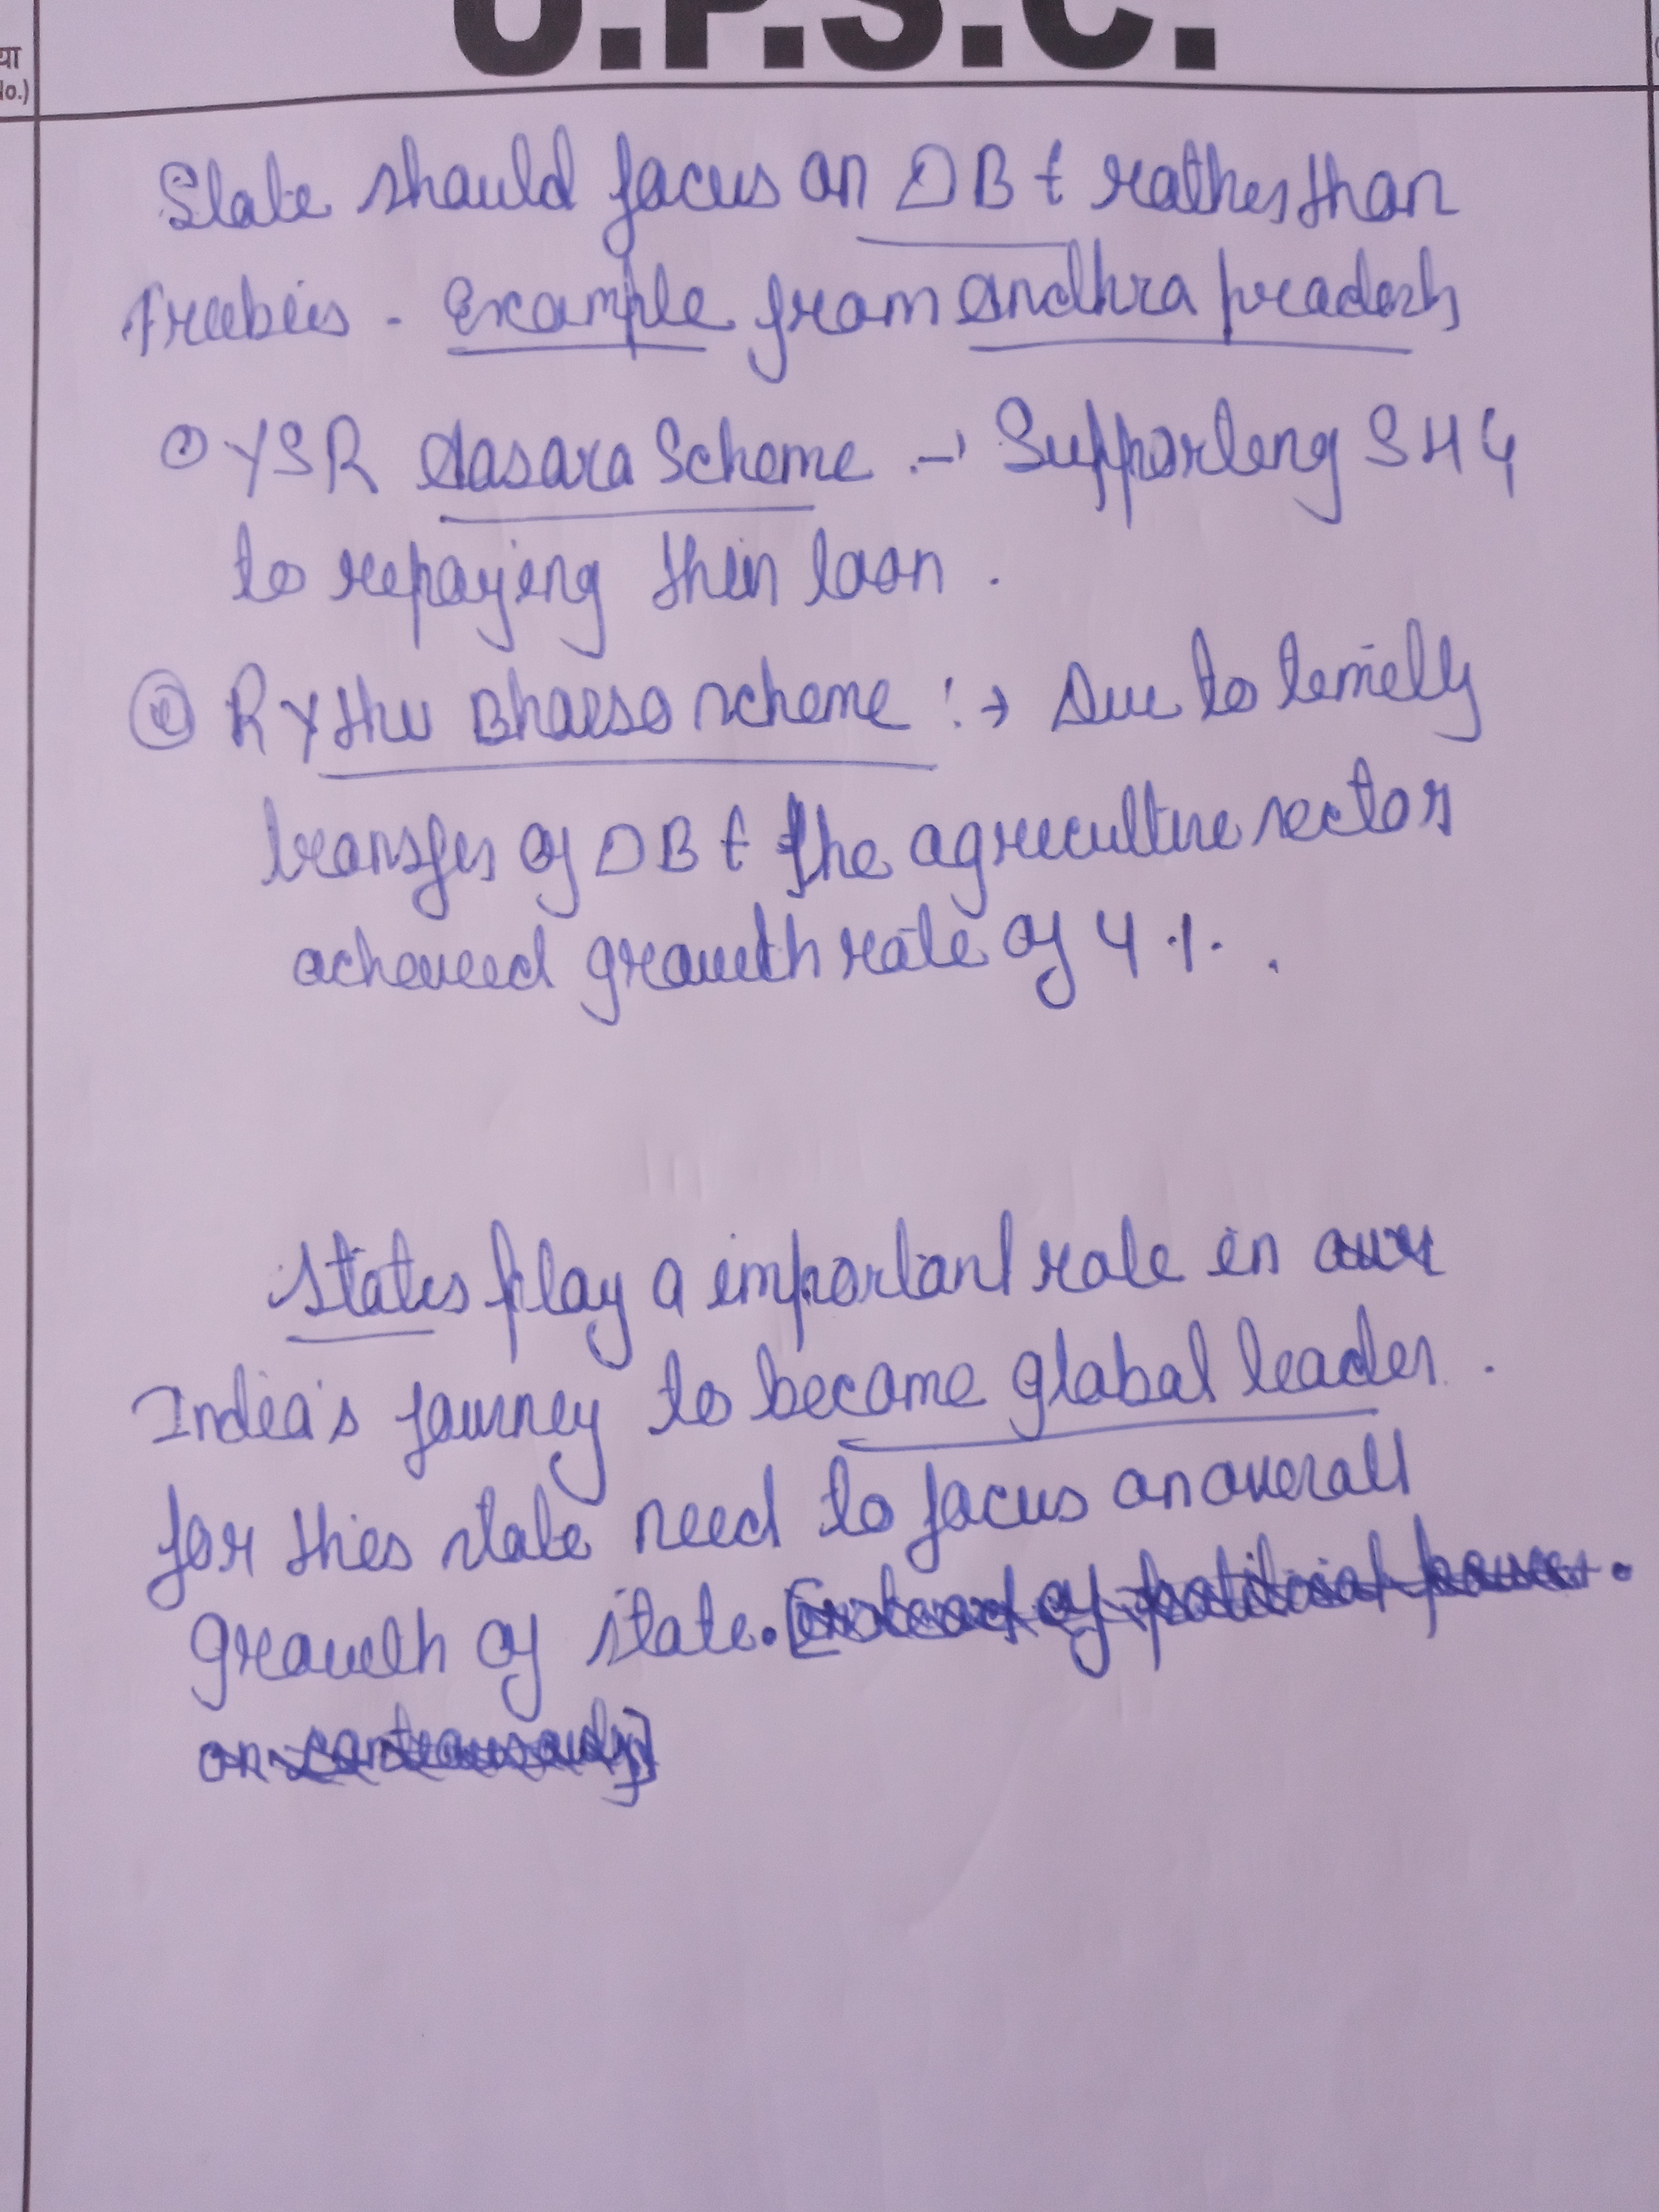 U.P.S.C.
या
No.)
State should focus on DBt rather than
freebies - Example from andhra pradesh
① YSR Aasara Scheme :-) Supporting SHG
to repaying their loan.
② Rythu Bharso scheme :→ Due to timely
transfer of DBt the agriculture sector
achieved growth rate of 4%.
States play a important role in our
India's journey to become global leader.
for this state need to focus on overall
growth of state. [instead of political power.